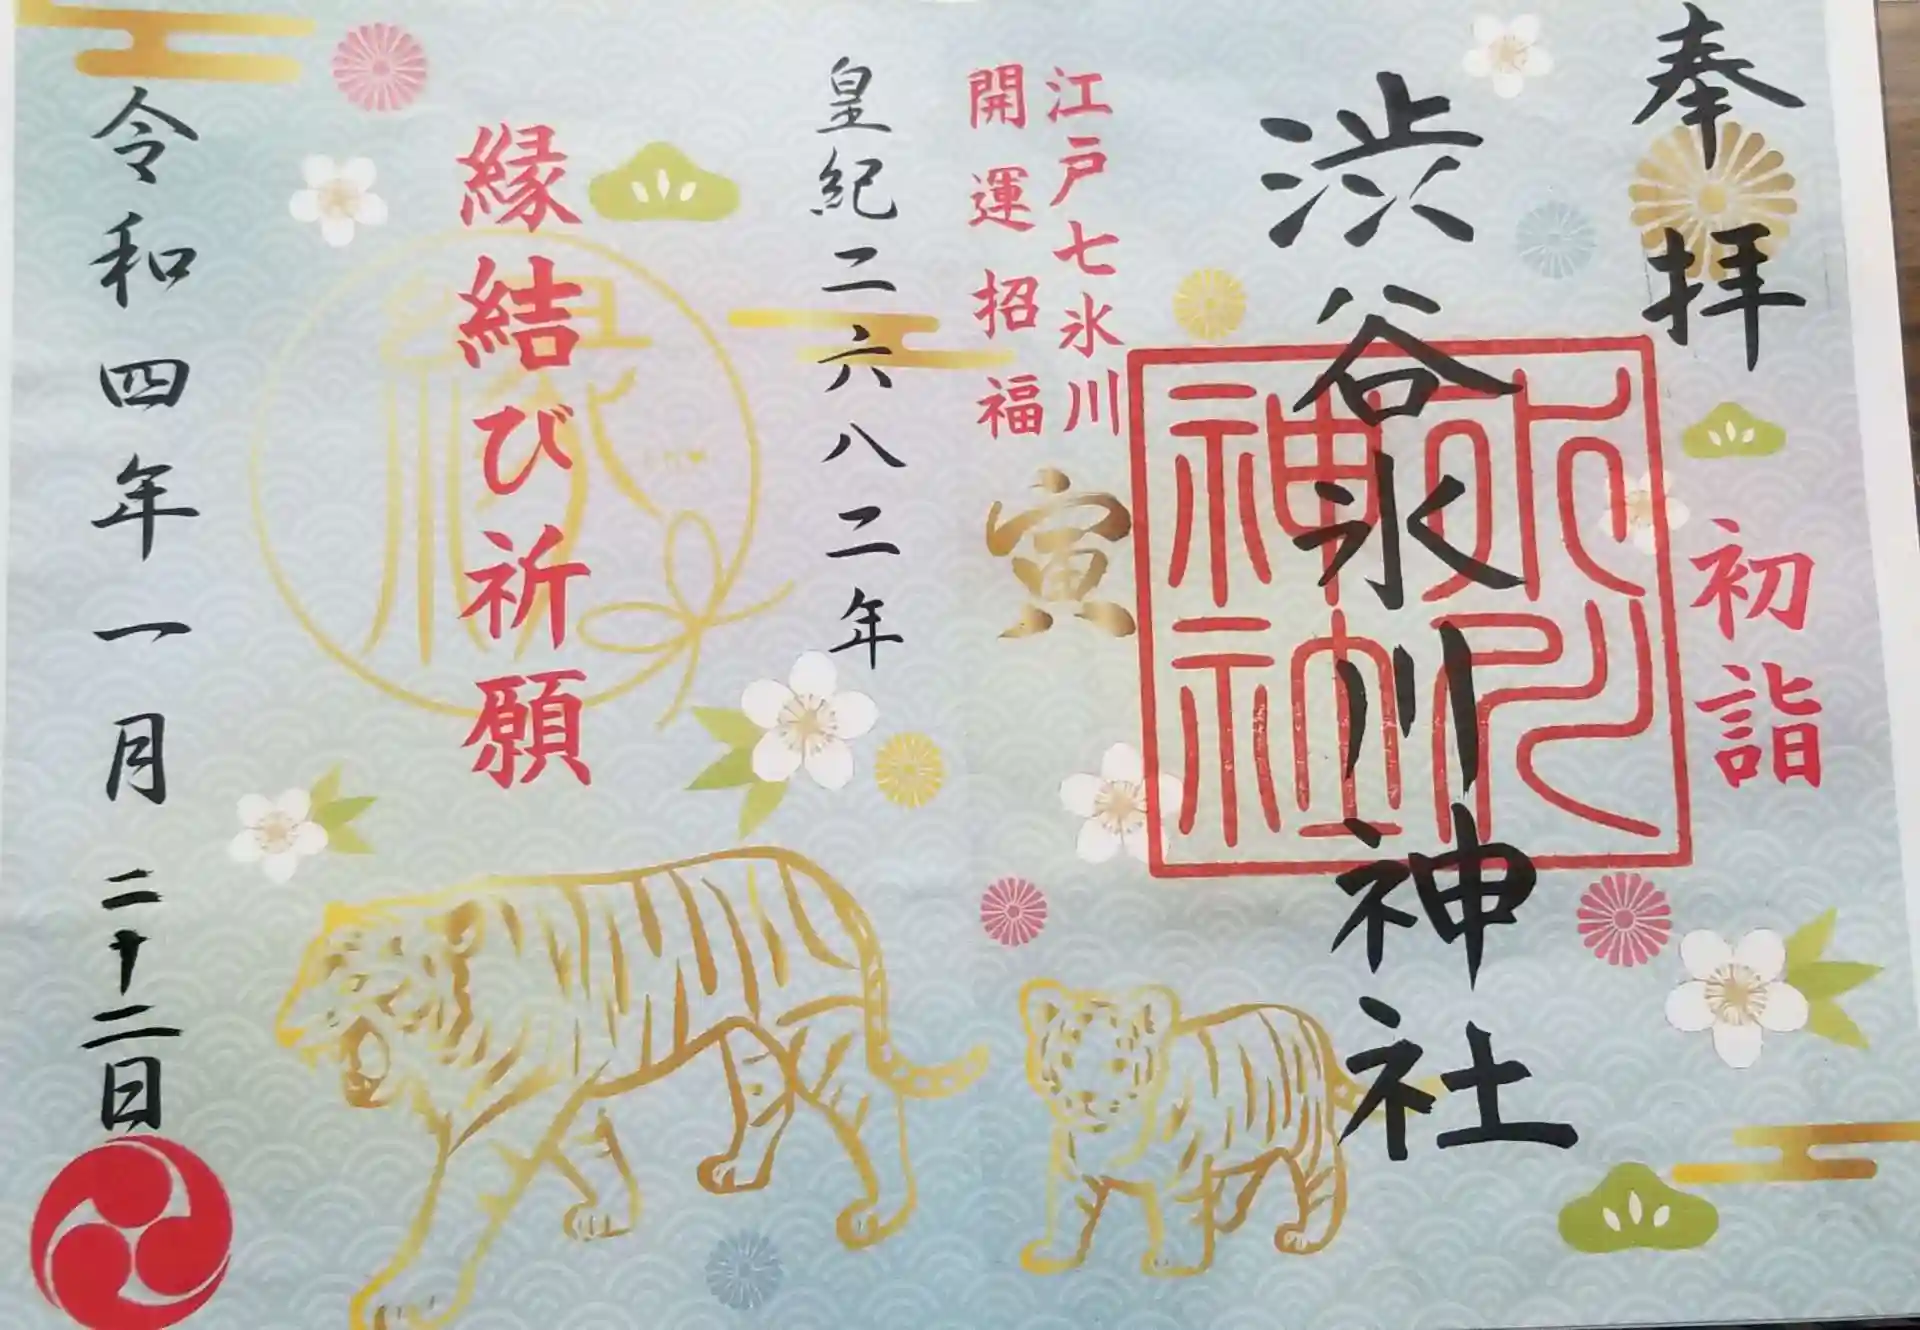 奉拝
初詣
渋谷氷川神社
氷川
神社
江戸七氷川
開運招福
寅
皇紀二六八二年
縁結び祈願
縁
令和四年一月二十二日